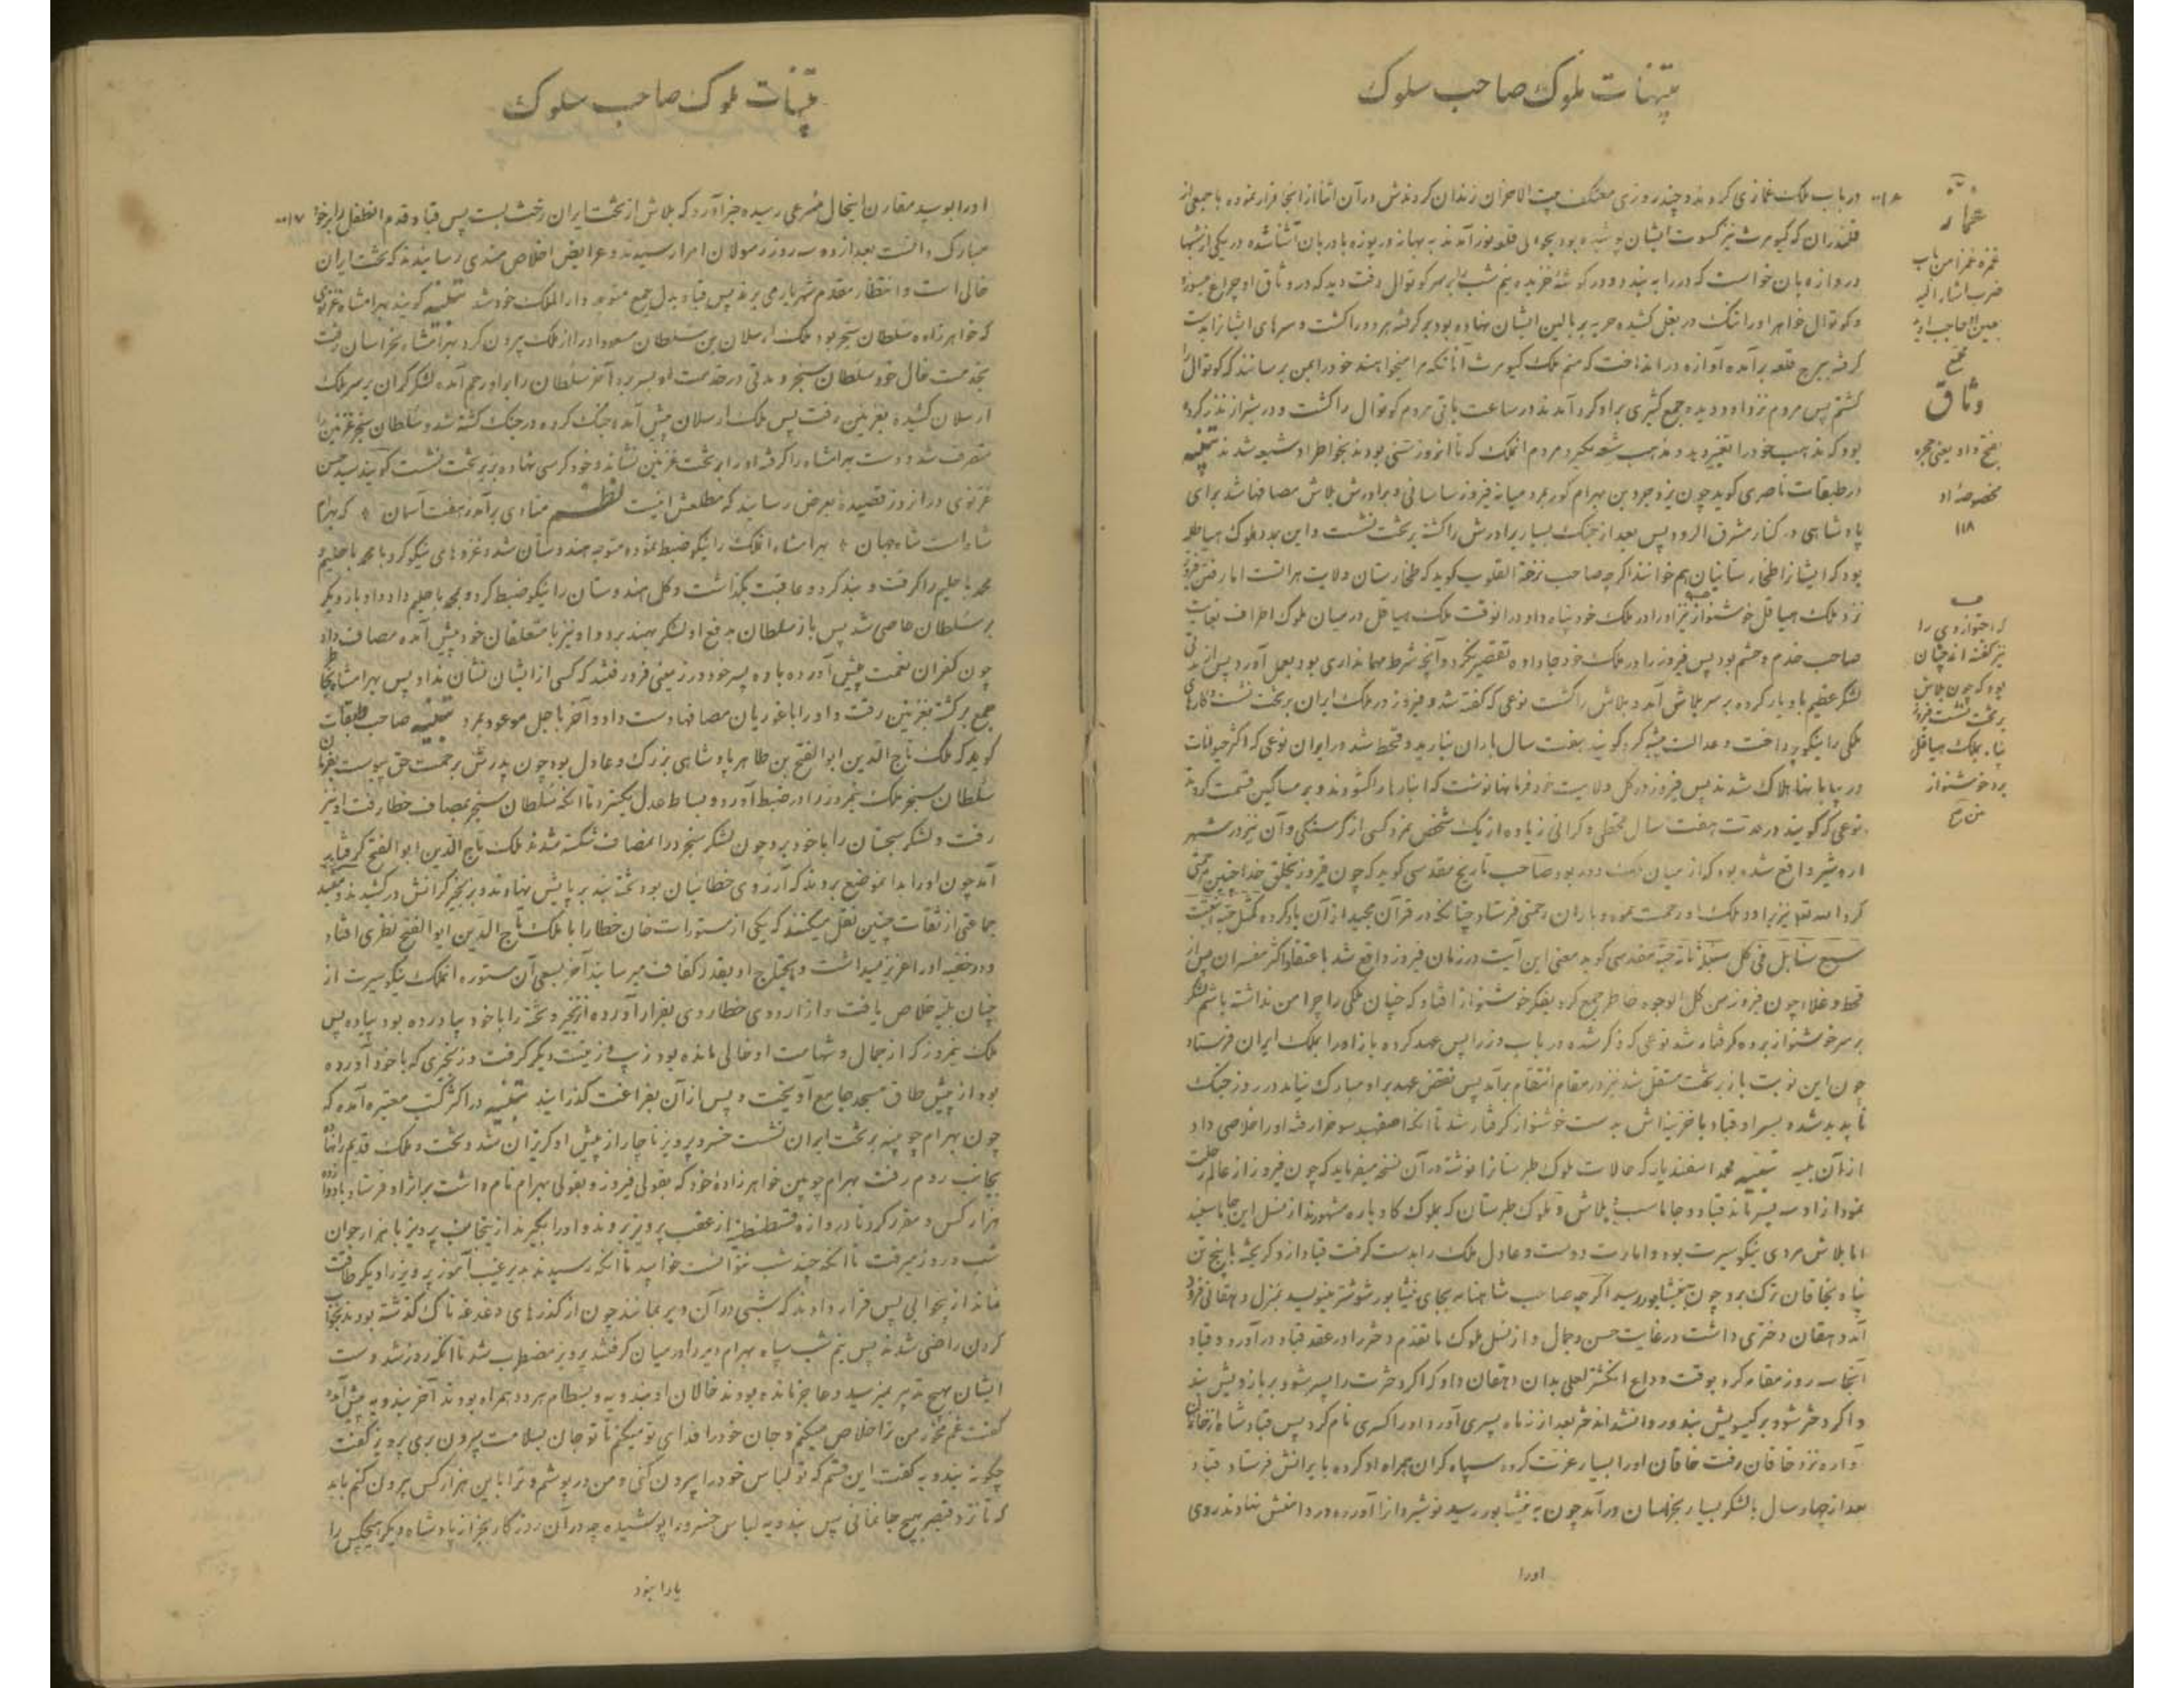 تنبیهات ملوک صاحب سلوک
در باب ملک غمازی کردند و چند روزی معتکف بیت الاحزان زندان کردندش در آن اثنا از انجا فرار نموده با جمعی از
قلندران که کیومرث نیز کسوت ایشان پوشیده بود بحوالی قلعه نور آمدند به بهانه دریوزه با دربان آشنا شده در یکی از شبها
دروازه بان خواست که در را به بندد در کوشهٔ خزیده نیم شب بر سر کوتوال رفت دید که در وثاق او چراغ میسوزد
و کوتوال خواهر او را تنک در بغل کشیده حربه بر بالین ایشان نهاده بود بر کرفته هر دو را کشت و سرهای ایشان را بدست
کرفته ببرج قلعه برآمده آوازه در انداخت که منم ملک کیومرث آنانکه مرا میخواهند خود را بمن برسانند که کوتوال را
کشتم پس مردم نزد او دویده جمع کثیری بر او کرد آمدند در ساعت باقی مردم کوتوال را کشت و در شیراز نذر کرده
بود که مذهب خود را تغییر دهد و مذهب شیعه بکیرد مردم آن ملک که تا آنروز سنی بودند بخواطر او شیعه شدند تنبیه
در طبقات ناصری کوید چون یزدجرد بن بهرام کور بمرد میانه فیروز ساسانی و برادرش بلاش مصافها شد برای
پادشاهی در کنار مشرق الرود پس بعد از جنک بسیار برادرش را کشته بر تخت نشست و این بمدد ملوک هیاطله
بود که ایشان را طخارستانیان هم خوانند اکر چه صاحب نزهة القلوب کوید که طخارستان ولایت هراتست اما رفتن فیروز
نزد ملک هیاطله خوشنواز نیز او را در ملک خود پناه داد در آنوقت ملک هیاطله در میان ملوک اطراف بغایت
صاحب خدم و حشم بود پس فیروز را در ملک خود جا داده تقصیر نکرد و آنچه شرط مهمانداری بود بعمل آورد پس از مدتی
لشکر عظیم با او یار کرده بر سر بلاش آمد و بلاش را کشت نوعی که کفته شد و فیروز در ملک ایران بر تخت نشست و کارهای
ملکی را نیکو پرداخت و عدالت پیشه کرد کویند هفت سال باران نبارید و قحط شد در ایران نوعی که اکثر حیوانات
در بیابانها هلاک شدند پس فیروز در کل ولایت خود فرمانها نوشت که انبارها را کشودند و بر مساکین قسمت کردند
نوعی که کویند در مدت هفت سال قحطی و کرانی زیاده از یک شخص نمرد کسی از کرسنکی و آن نیز در شهر
اردشیر واقع شده بود که از میان ملک دور بود صاحب تاریخ مقدسی کوید که چون فیروز بخلق خدا چنین رحمتی
کرد الله تعالی نیز بر او و ملک او رحمت نموده باران رحمتی فرستاد چنانکه در قرآن مجید از آن یاد کرده کمثل حبة انبتت
سبع سنابل فی کل سنبلة مائة حبة مقدسی کوید معنی این آیت در زمان فیروز واقع شد با عتقاد اکثر مفسران پس از
قحط و غلا چون فیروز من کل الوجوه خاطر جمع کرد بفکر خوشنواز افتاد که چنان ملکی را چرا من نداشته باشم لشکر
بر سر خوشنواز برده کرفتار شد نوعی که ذکر شده در باب وزرا پس عهد کرده باز او را بملک ایران فرستاد
چون این نوبت باز بر تخت مستقل شد نیز در مقام انتقام برآمد پس نقض عهد بر او مبارک نیامد در روز جنک
ناپدید شده پسر او قباد با خزینه اش بدست خوشنواز کرفتار شد تا آنکه اصفهبد سوخرا رفته او را خلاصی داد
از آن بلیه تنبیه محمد اسفندیار که حالات ملوک طبرستان را نوشته در آن نسخه میفرماید که چون فیروز از عالم رحلت
نمود از او سه پسر ماند قباد و جاماسب و بلاش و ملوک طبرستان که بملوک کاوباره مشهورند از نسل این جاماسبند
اما بلاش مردی نیکو سیرت بود و امارت دوست و عادل ملک را بدست کرفت قباد از او کریخته با پنج تن
پناه بخاقان ترک برد چون بنیشابور رسید اکر چه صاحب شاهنامه بجای نیشابور شوشتر مینویسد بمنزل دهقانی فرود
آمد دهقان دختری داشت در غایت حسن و جمال و از نسل ملوک ما تقدم دختر را در عقد قباد درآورد و قباد
آنجا سه روز مقام کرد بوقت وداع انکشتر لعلی بدان دهقان داد که اکر دخترت را پسر شود بر بازویش بند
و اکر دختر شود بر کیسویش بند و روانه شد اندختر بعد از نه ماه پسری آورد او را کسری نام کرد پس قباد
نزد خاقان رفت خاقان او را بسیار عزت کرده سپاه کران همراه او کرده با یرانش فرستاد قباد
بعد از چهار سال با لشکر بسیار بخراسان درآمد چون به نیشابور رسید نوشیروان را آورده در دامنش نهادند روی
اورا
غماز
غمزه غمزا من باب
ضرب اشار الیه
بعین او حاجب او ید
مجمع
وثاق
بفتح واو یعنی حجره
مخصوصه او
۱۱۸
نیز کفته اند چنان
بود که چون بلاش
بر تخت نشست فیروز
پناه بملک هیاطله
برد خوشنواز
تنبیهات ملوک صاحب سلوک
او را بوسید مقارن اینحال مسرعی رسیده خبر آورد که بلاش از تخت ایران رخت بست پس قباد قدم انطفل را بر خود
مبارک دانست بعد از ده سه روز رسولان امرا رسیدند و عرایض اخلاص مندی رسانیدند که تخت ایران
خالی است و انتظار مقدم شهریار می برند پس قباد بدل جمع متوجه دار الملک خود شد تنبیه کویند بهرامشاه غزنوی
که خواهرزاده سلطان سنجر بود ملک ارسلان بن سلطان مسعود او را از ملک بیرون کرد بهرامشاه بخراسان رفت
بخدمت خال خود سلطان سنجر و مدتی در خدمت او بسر برد آخر سلطان را بر او رحم آمده لشکر کران بر سر ملک
ارسلان کشیده بغزنین رفت پس ملک ارسلان پیش آمده جنک کرده در جنک کشته شد و سلطان سنجر غزنین را
متصرف شد و دست بهرامشاه را کرفته او را بر تخت غزنین نشاند و خود کرسی نهاده بزیر تخت نشست کویند سید حسن
غزنوی در انروز قصیده بعرض رسانید که مطلعش اینست نظم منادی برآمد ز هفت آسمان * که بهرام
شاه است شاه جهان * بهرامشاه انملک را نیکو ضبط نموده متوجه هندوستان شد و غزوهای نیکو کرد با محمد باحلیم و
محمد باحلیم را کرفت و بند کرد و عاقبت بکذاشت و کل هندوستان را نیکو ضبط کرد و بمحمد باحلیم داد و او بار دیکر
بر سلطان عاصی شد پس باز سلطان بدفع او لشکر بهند برد و او نیز با متعلقان خود پیش آمده مصاف داد
چون کفران نعمت پیش آورده با ده پسر خود در زمینی فرو رفتند که کسی از ایشان نشان نداد پس بهرامشاه
جمع برکشته بغزنین رفت و او را با غوریان مصافها دست داد و آخر با جل موعود بمرد تنبیه صاحب طبقات
کوید که ملک تاج الدین ابو الفتح بن طاهر پادشاهی بزرک و عادل بود چون پدرش برحمت حق پیوست بفرمان
سلطان سنجر ملک نیمروز را در ضبط آورد و بساط عدل بکسترد تا آنکه سلطان سنجر بمصاف خطا رفت او نیز
رفت و لشکر سجستان را با خود برد چون لشکر سنجر در ا نمصاف شکسته شدند ملک تاج الدین ابو الفتح کرفتار
آمد چون او را بدا نموضع بردند که آرزوی خطائیان بود تخته بند بر پایش نهادند و بزنجیر کرانش در کشیدند
جماعتی از ثقات چنین نقل میکنند که یکی از مستورات خان خطا را با ملک تاج الدین ابو الفتح نظری افتاد
و در خفیه او را عزیز میداشت و مایحتاج او بقدر کفاف میرسانید آخر بسعی آن مستوره انملک نیکو سیرت از
چنان بلیه خلاص یافت و از اردوی خطا روی بفرار آورده از زنجیر و تخته را با خود بیاورده بود پیاده پس
ملک نیمروز که از جمال و شهامت او خالی مانده بود زیب و زینت دیکر کرفت و زنجیری که با خود آورده
بود از پیش طاق مسجد جامع آویخت و پس از آن بفراغت کذرانید تنبیه در اکثر کتب معتبره آمده که
چون بهرام چوبینه بر تخت ایران نشست خسرو پرویز ناچار از پیش او کریزان شد و تخت و ملک قدیم را نهاده
بجانب روم رفت بهرام چوبین خواهرزادهٔ خود که بقولی فیروز و بقولی بهرام نام داشت بر اثر او فرستاد با دوازده
هزار کس و مقرر کرد تا دروازه قسطنطنیه از عقب پرویز بروند و او را بکیرند از ینجانب پرویز با هزار جوان
شب و روز میرفت تا آنکه چند شب نتوانست خوابید تا آنکه رسیدند بدیر غیب آموز پرویز را دیکر طاقت
نماند از بیخوابی پس قرار دادند که شبی در آن دیر بمانند چون از کذرهای دغدغه ناک کذشته بودند بخواب
کردن راضی شدند پس نیم شب سپاه بهرام دیر را در میان کرفتند پرویز مضطرب شد تا آنکه روز شد دست
ایشان بهیچ تدبیر نمیرسید و عاجز مانده بودند خالان او بندویه و بسطام هر دو همراه بودند آخر بندویه پیش آمده
کفت غم مخور من ترا خلاص میکنم و جان خود را فدای تو میکنم تا تو جان بسلامت بیرون بری پرویز کفت
چکونه بندویه کفت این قسم که تو لباس خود را بیرون کنی و من در پوشم و ترا با این هزار کس بیرون کنم باید
که تا نزد قیصر هیچ جا نمانی پس بندویه لباس خسرو را پوشیده چه در آن روزکار بجز از پادشاه دیکر هیچکس را
یارا نبود